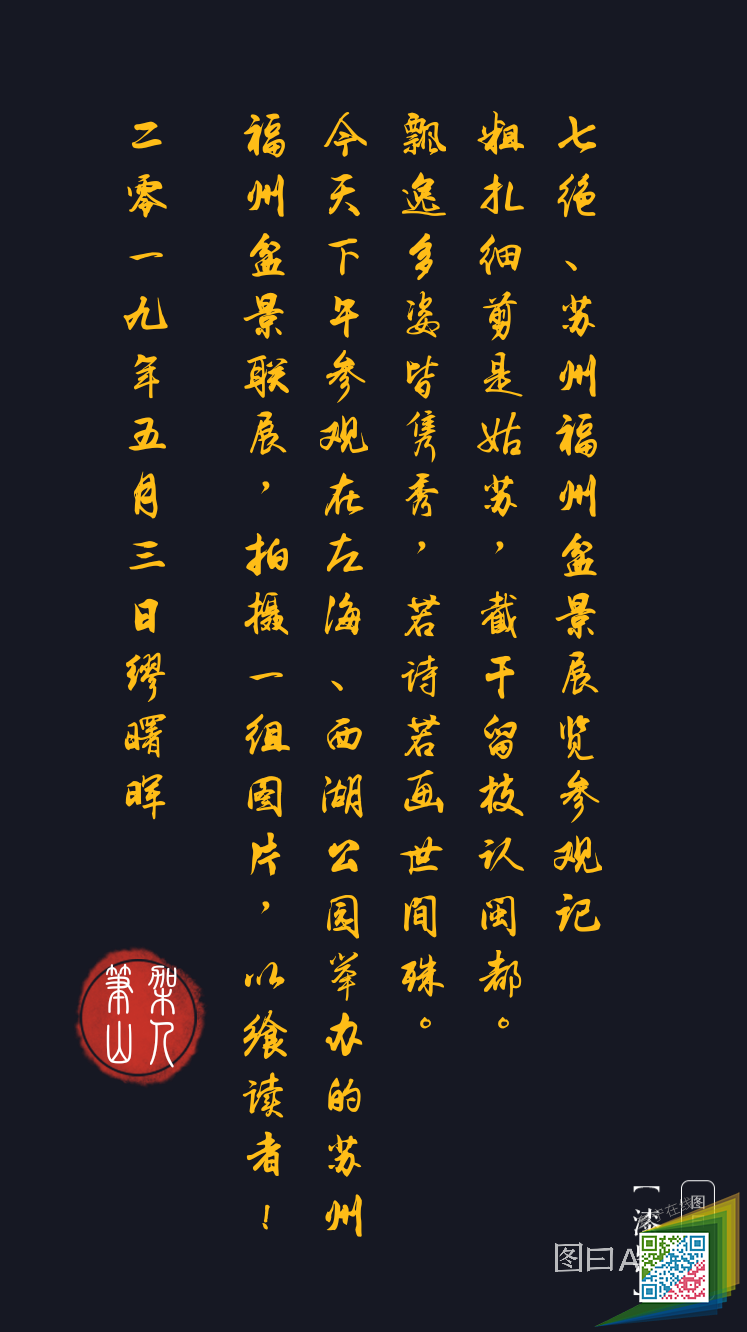 七绝、苏州福州盆景展览参观记
粗扎细剪是姑苏，截干留技认闽都。
飘逸多姿皆隽秀，若诗若画世间殊。
今天下午参观在左海、西湖公园举办的苏州
福州盆景联展，拍摄一组图片，以飨读者！
二零一九年五月三日缪曙晖
架人
笔山
图曰A